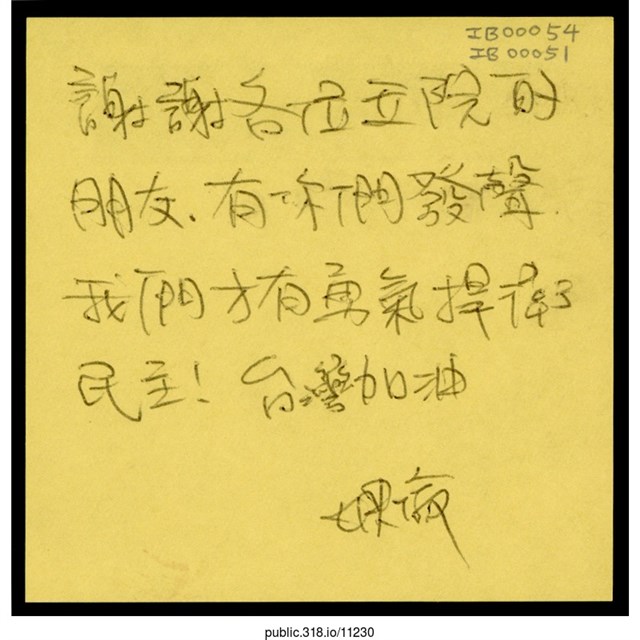 IB00054
IB00051
謝謝各位立院的
朋友.有你們發聲.
我們才有勇氣捍衛
民主!台灣加油
public.318.io/11230